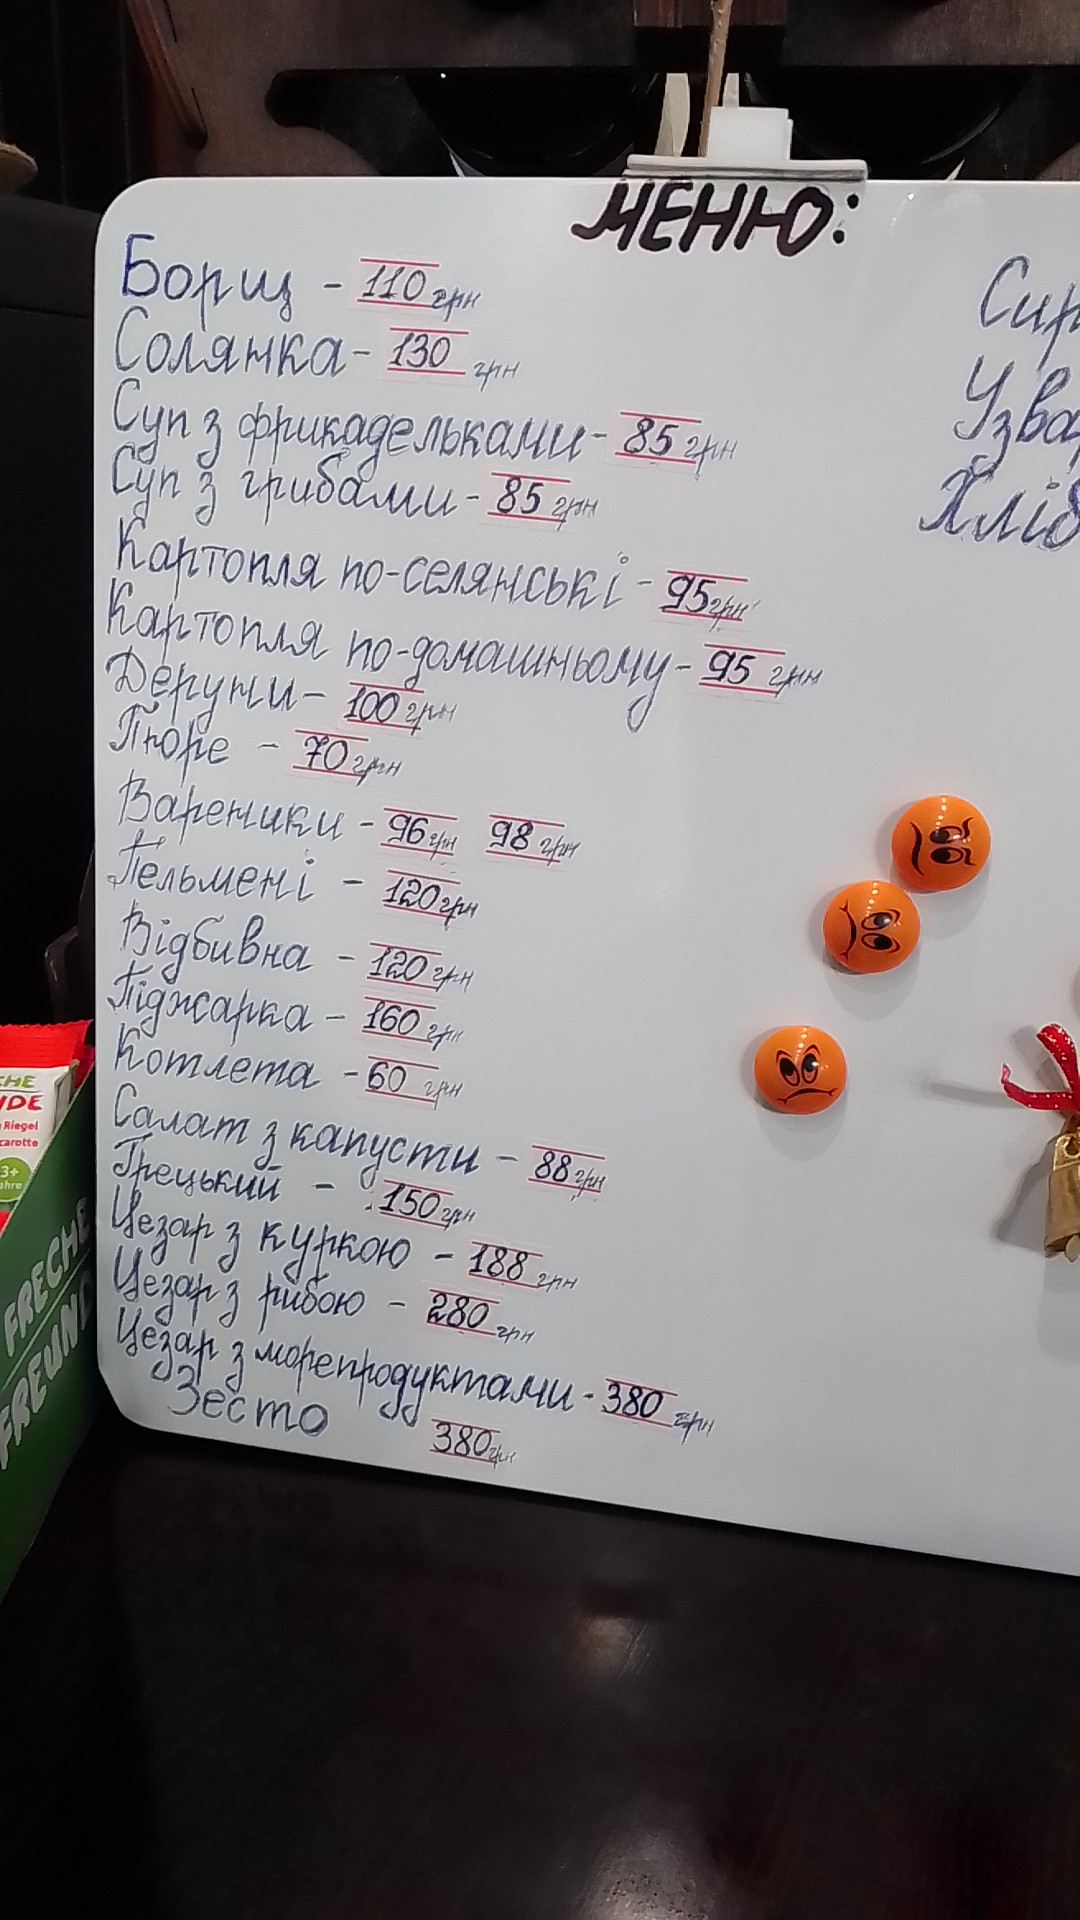 МЕНЮ:
Борщ - 110 грн
Солянка - 130 грн
Суп з фрикадельками - 85 грн
Суп з грибами - 85 грн
Картопля по-селянські - 95 грн
Картопля по-домашньому - 95 грн
Деруни - 100 грн
Пюре - 70 грн
Вареники - 96 грн 98 грн
Пельмені - 120 грн
Відбивна - 120 грн
Піджарка - 160 грн
Котлета - 60 грн
Салат з капусти - 88 грн
Грецький - 150 грн
Цезар з куркою - 188 грн
Цезар з рибою - 280 грн
Цезар з морепродуктами - 380 грн
Зесто 380 грн
Сир
Узва
Хліб
CHE
Riegel
carotte
3+
ahre
FRECHE
FREUND